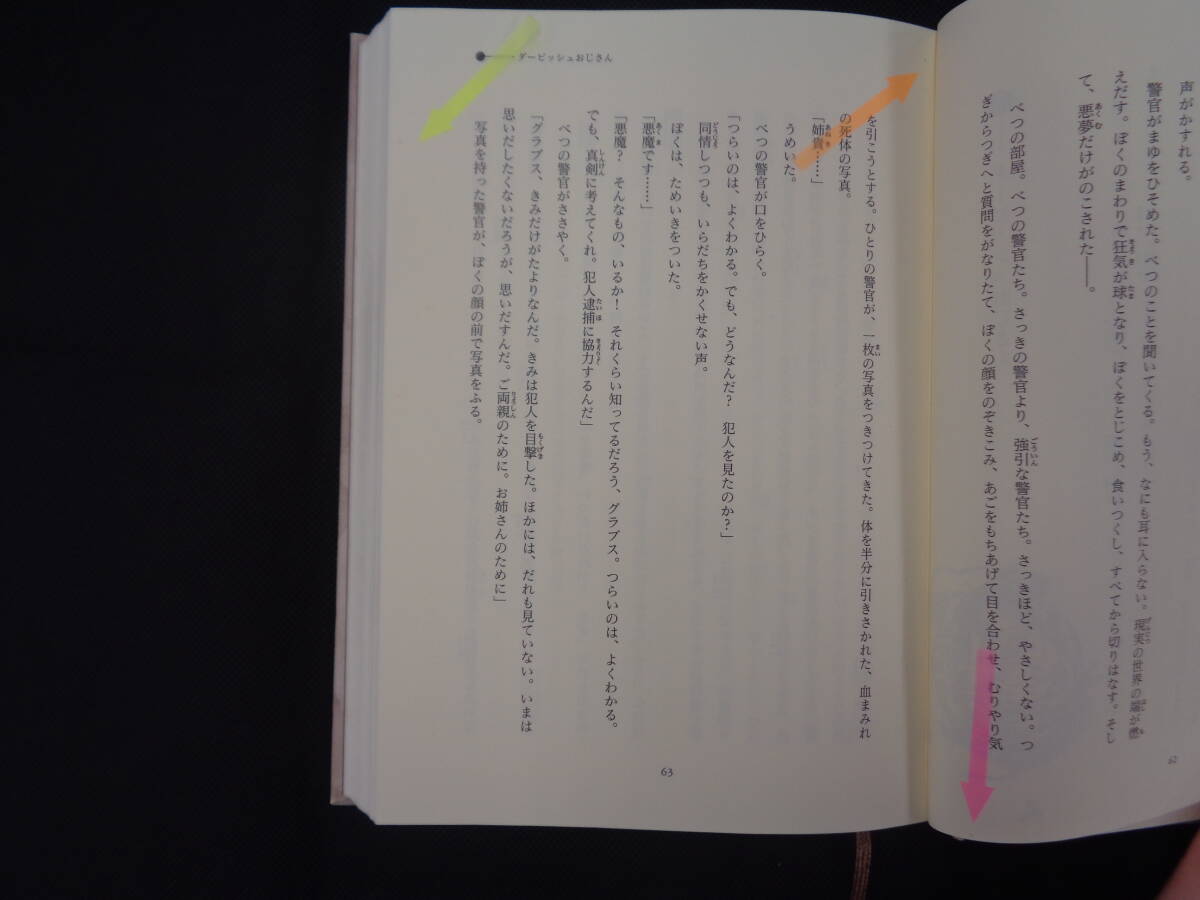 声がかすれる。
警官がまゆをひそめた。べつのことを聞いてくる。もう、なにも耳に入らない。現実の世界の端が燃
えだす。ぼくのまわりで狂気が球となり、ぼくをとじこめ、食いつくし、すべてから切りはなす。そし
て、悪夢だけがのこされた――。
べつの部屋。べつの警官たち。さっきの警官より、強引な警官たち。さっきほど、やさしくない。つ
ぎからつぎへと質問をがなりたて、ぼくの顔をのぞきこみ、あごをもちあげて目を合わせ、むりやり気
62
ダービッシュおじさん
を引こうとする。ひとりの警官が、一枚の写真をつきつけてきた。体を半分に引きさかれた、血まみれ
の死体の写真。
「姉貴……」
うめいた。
べつの警官が口をひらく。
「つらいのは、よくわかる。でも、どうなんだ？　犯人を見たのか？」
同情しつつも、いらだちをかくせない声。
ぼくは、ためいきをついた。
「悪魔です……」
「悪魔？　そんなもの、いるか！　それくらい知ってるだろう、グラブス。つらいのは、よくわかる。
でも、真剣に考えてくれ。犯人逮捕に協力するんだ」
べつの警官がささやく。
「グラブス、きみだけがたよりなんだ。きみは犯人を目撃した。ほかには、だれも見ていない。いまは
思いだしたくないだろうが、思いだすんだ。ご両親のために。お姉さんのために」
写真を持った警官が、ぼくの顔の前で写真をふる。
63